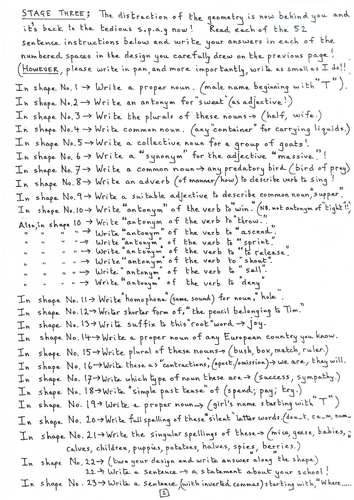 STAGE THREE; The distraction of the geometry is now behind you and
it's back to the tedious s.p.a.g now! Read each of the 52
sentence instructions below and write your answers in each of the
numbered spaces in the design you carefully drew on the previous page!
(HOWEVER, please write in pen, and more importantly, write as small as I do!!
In shape No.1 → Write a proper noun. (male name beginning with "T").
In shape No.2 → Write an antonym for "sweat" (as adjective!)
In shape No.3 → Write the plurals of these nouns → (half, wife.)
In shape No.4 → Write common noun. (any "container" for carrying liquids.)
In shape No.5 → Write a collective noun for a group of goats!
In shape No.6 → Write a "synonym" for the adjective "massive."!
In shape No.7 → Write a common noun → any predatory bird. (bird of prey)
In shape No.8 → Write an adverb (of manner/how) to describe verb to sing!
In shape No.9 → Write a suitable adjective to describe common noun, "supper".
In shape No.10 → Write "antonym" of the verb to "win". (NB. not antonym of "tight"!!)
Also, in shape 10 → Write "antonym" of the verb to "throw."
" " " " → Write "antonym" of the verb to "ascend."
" " " " → Write "antonym" of the verb to "sprint."
" " " " → Write "antonym" of the verb to "to release."
" " " " → Write "antonym" of the verb to "shout".
" " " " → Write "antonym" of the verb to "sell".
" " " " → Write "antonym" of the verb to "deny"
In shape No.11 → Write "homophone" (same sound) for noun, "hole".
In shape No.12 → Write shorter form of, "the pencil belonging to Tim."
In shape No.13 → Write suffix to this "root" word → joy.
In shape No.14 → Write a proper noun of any European country you know.
In shape No.15 → Write plural of these nouns → (bush, box, match, ruler.)
In shape No.16 → Write these as "contractions," (apost/omission) → we are, they will.
In shape No.17 → Write which type of noun these are → (success, sympathy.)
In shape No.18 → Write "simple past tense" of (spend; pay; try.)
In shape No.19 → Write a proper noun → (girl's name starting with "T")
In shape No.20 → Write full spelling of these "silent" letter words. (dou_t, ca_m, num_
In shape No.21 → Write the singular spellings of these → (mice, geese, babies,
calves, children, puppies, potatoes, halves, spies, berries.)
In shape No.22 → (turn your design and write answer along the shape)
22 → Write a sentence → a statement about your school!
In shape No.23 → Write a sentence, (with inverted commas) starting with, "Where......